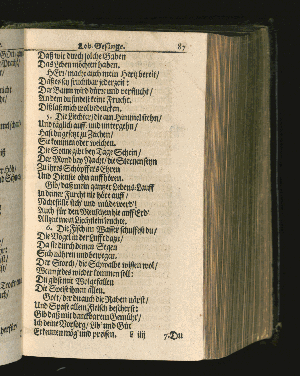 Lob-Gesänge. 87
Daß wir durch solche Gaben
Das Leben möchten haben.
HErr/ mache auch mein Hertz bereit/
Daß es sey fruchtbar jederzeit:
Der Baum wird dürr und verflucht/
An dem du findest keine Frucht.
Diß laß mich wol bedencken.
5. Die Liechter/ die am Himmel stehn/
Und täglich auff und untergehn/
Hast du gesetzt zu Zeichen/
Sie kommen oder weichen.
Die Sonne gibt bey Tage Schein/
Der Mond bey Nacht/ die Sternen seyn
Zu ihres Schöpffers Ehren
Und Dienste ohn auffhören.
Gib/ daß mein gantzer Lebens-Lauff
In deiner Furcht nie höre auff/
Auch für den Menschen hie auff Erd/
6. Die Fisch im Wasser schuffst du/
Die Vögel in der Lufft dazu/
Daß sie durch deinen Segen
Sich nähren und bewegen.
Der Storch/ die Schwalbe wissen wol/
Wenn jedes wieder kommen soll:
Du gibst auf
Die Speise ihnen allen.
Gott/ der du auch die Raben nährst/
Und Speiß allem Fleisch bescherst:
Gib daß mit danckbarem Gemüht/
Ich deine Vorsorg/ Lib' und Güt
Erkennen mög und preisen.
iiij 7. Du